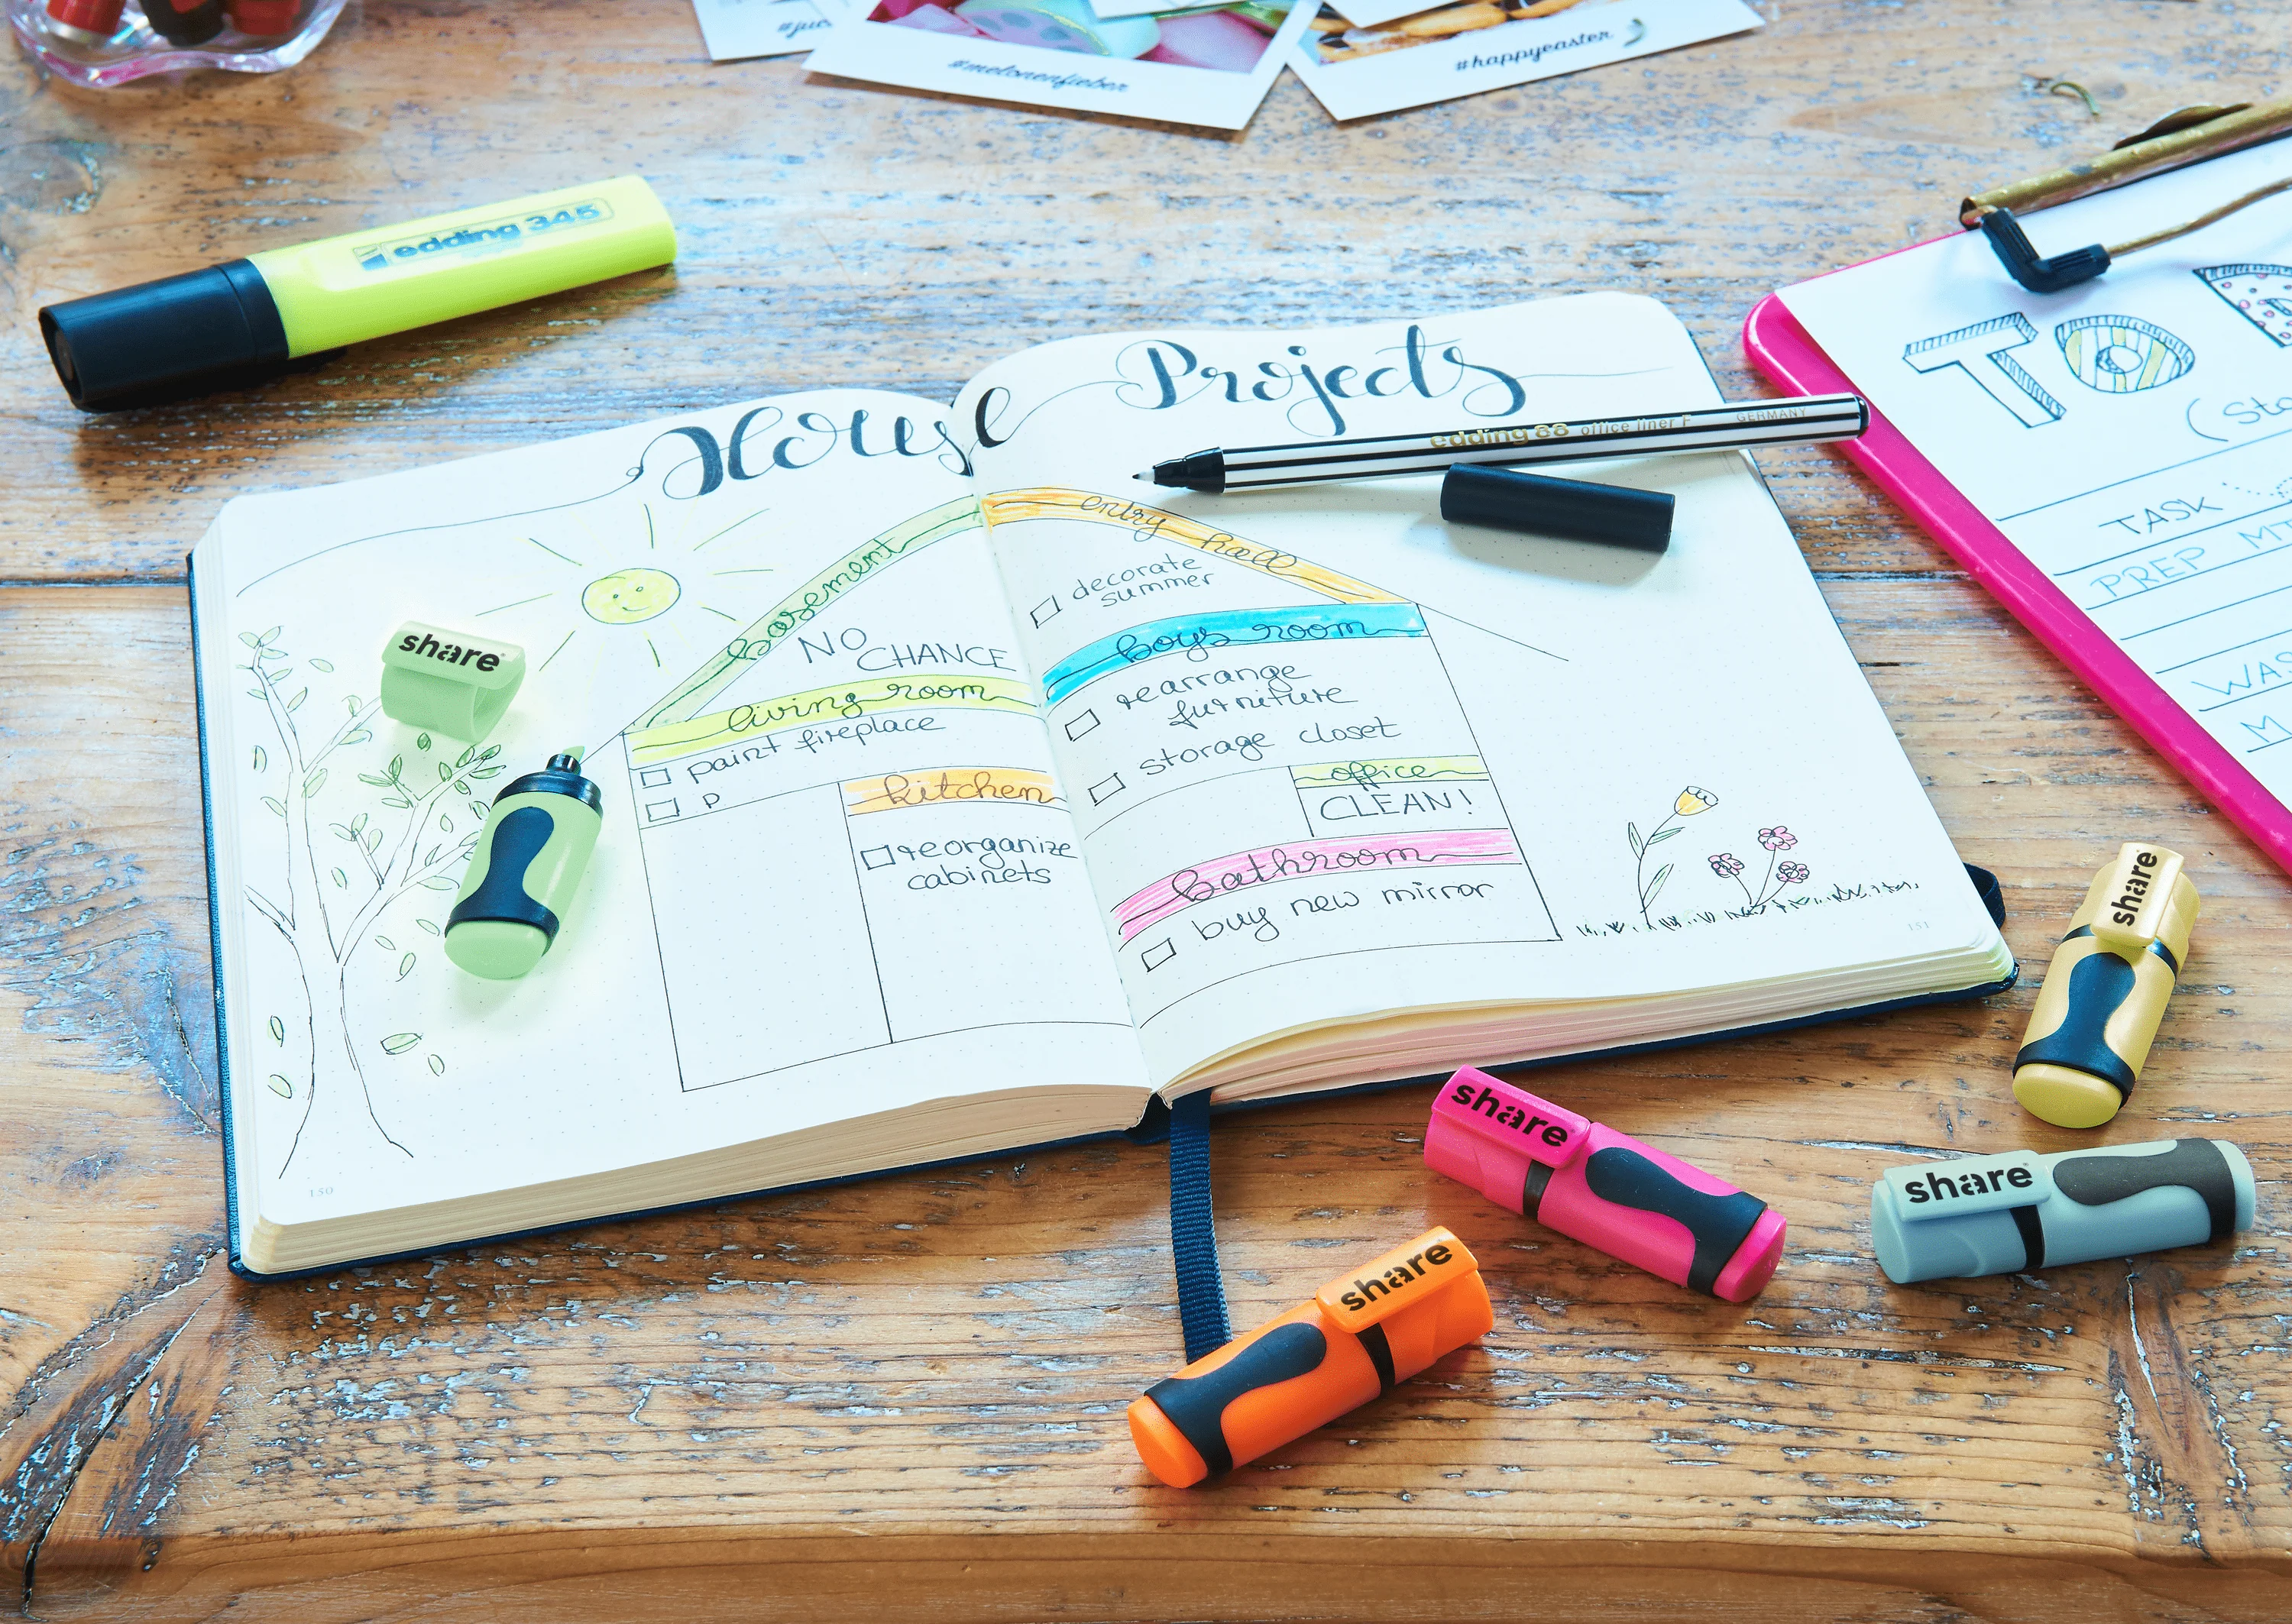 #melonenfieber
#happyeaster
edding 345
House Projects
edding 88 office liner F GERMANY
basement
NO
CHANCE
living room
paint fireplace
P
kitchen
reorganize
cabinets
entry hall
decorate
summer
boys room
rearrange
furniture
storage closet
office
CLEAN!
bathroom
buy new mirror
150
151
TO
TASK
PREP
share
share
share
share
share